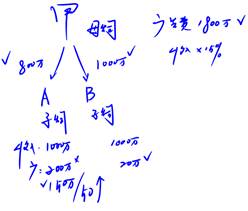 甲 母公司
广告费 1800万 ✓
收入 × 15%
✓ 800万 1000万 ✓
A B
子公司 子公司
收入: 1000万 1000万
广: 200万 × 20万 ✓
✓ 150万 / 50 ↑